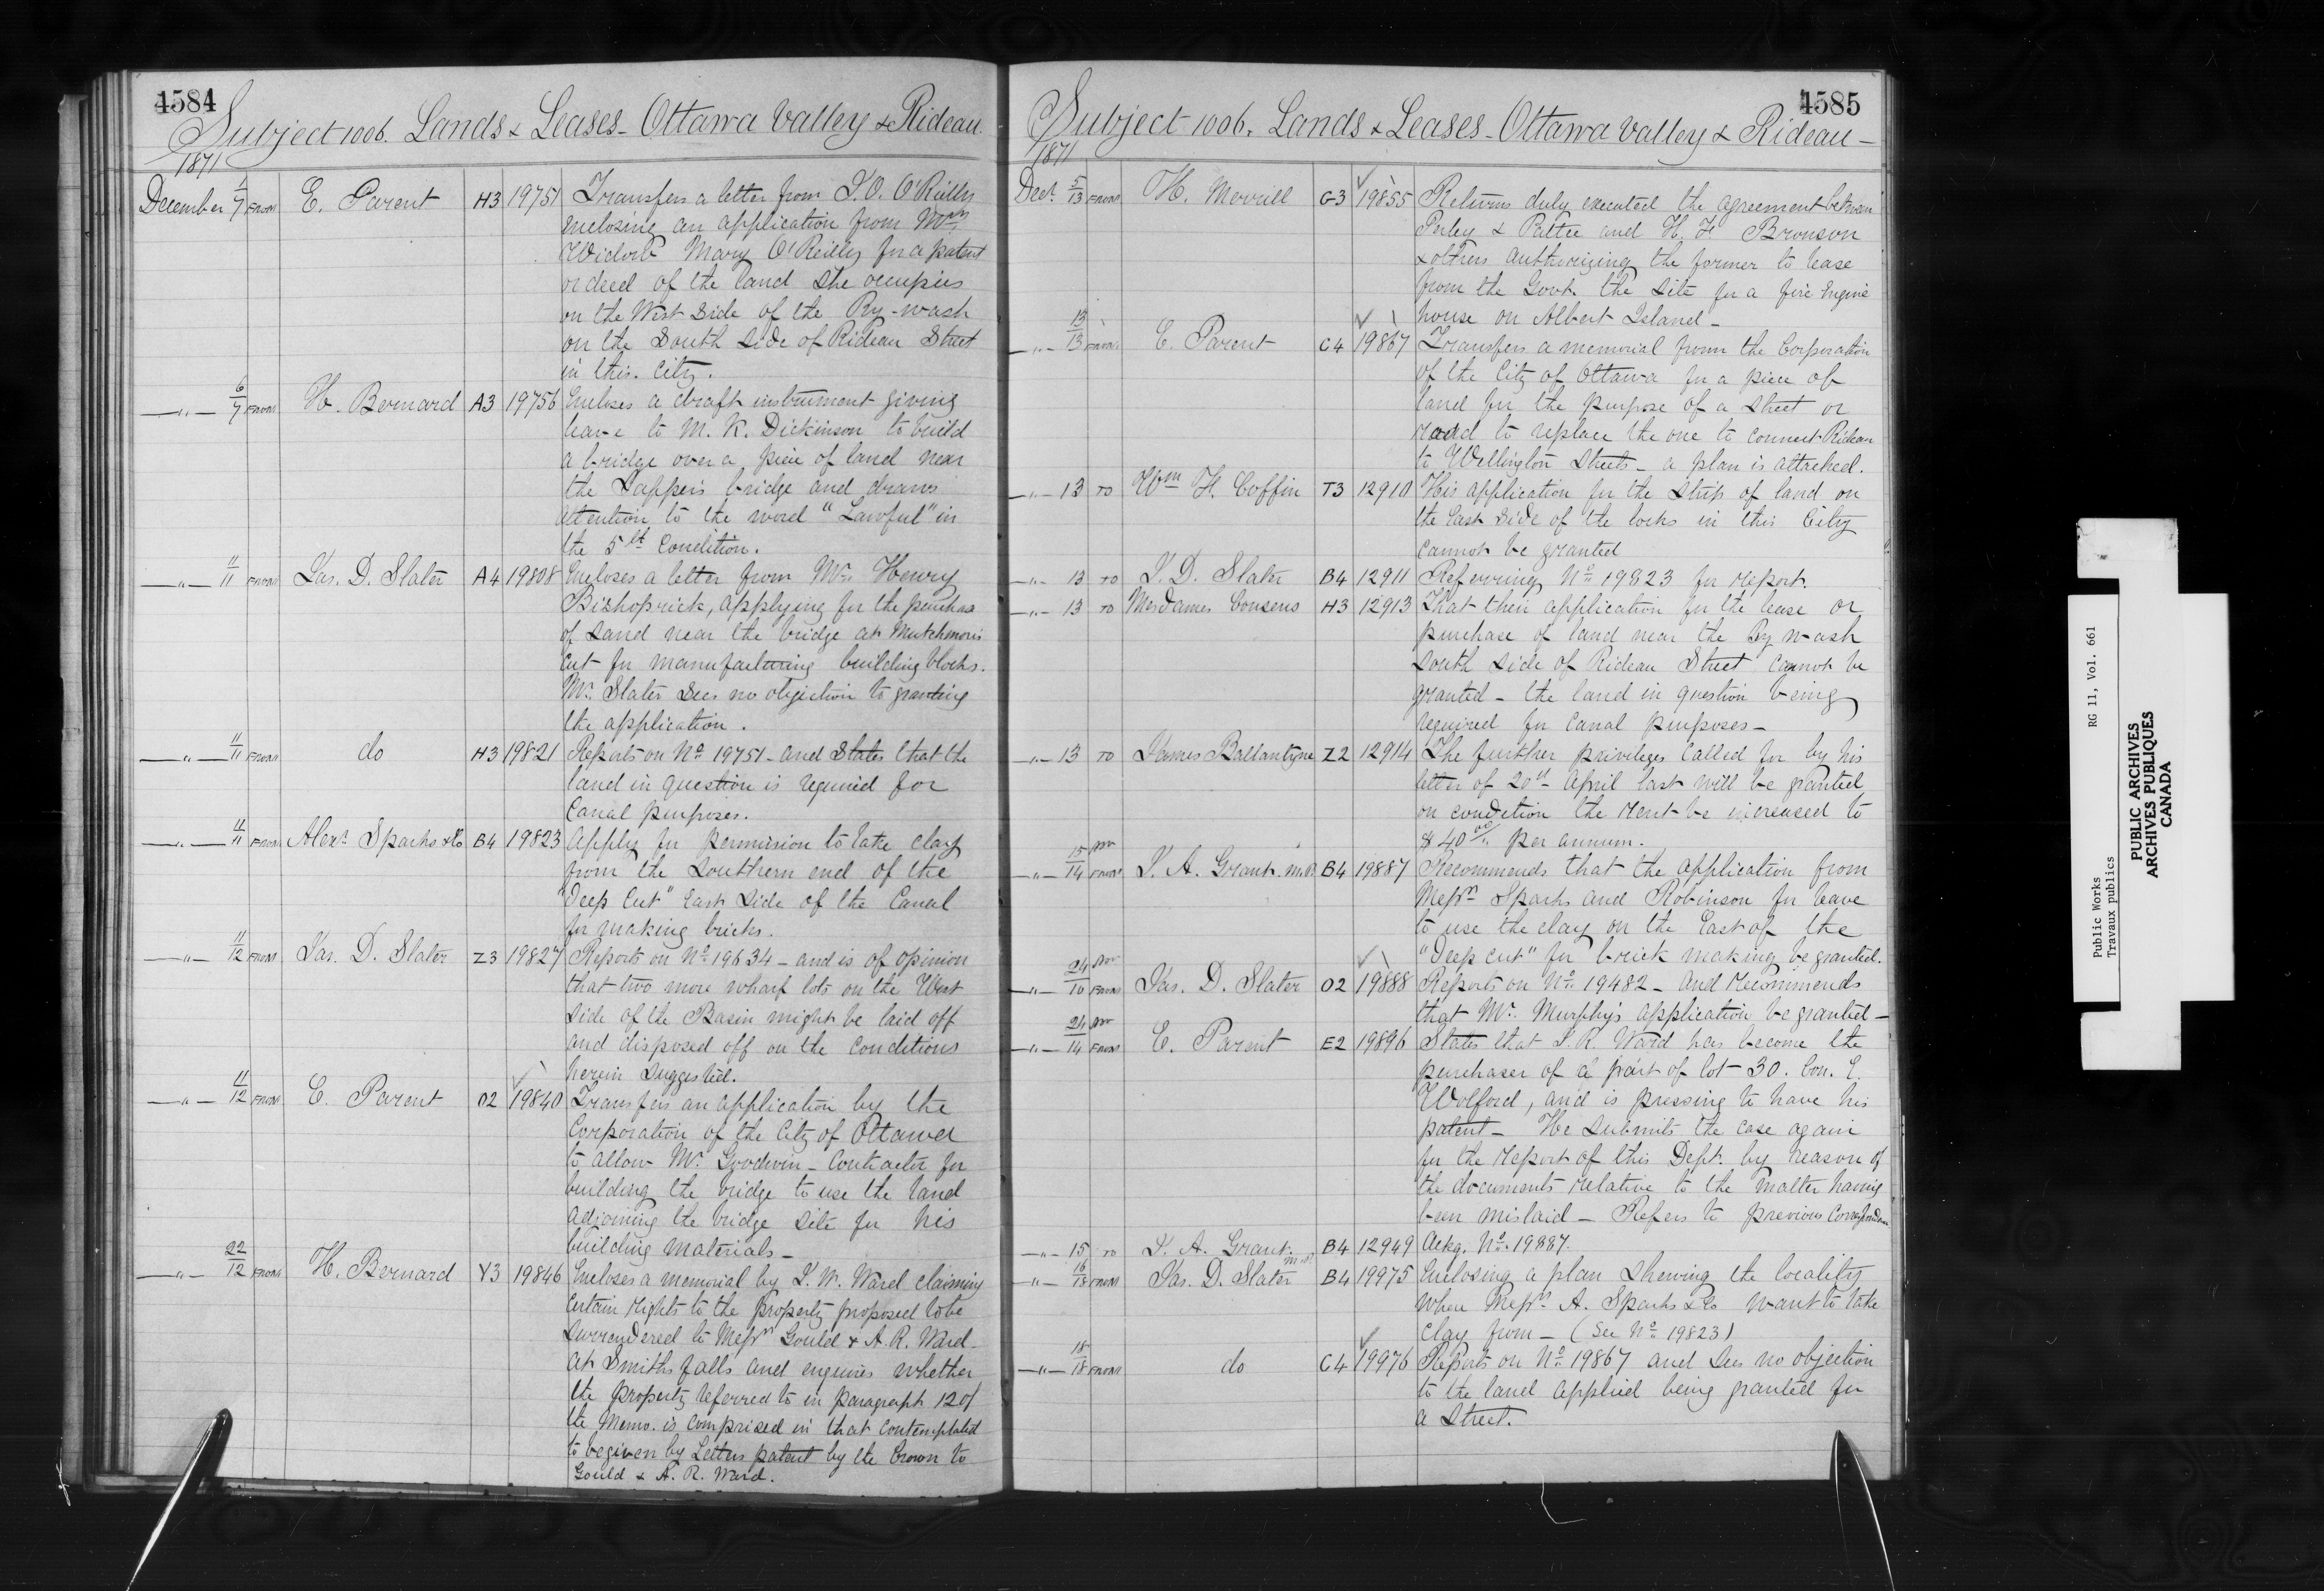 4584
Subject 1006. Lands & Leases - Ottawa Valley & Rideau.
1871
December 1/7 From E. Parent H3 19751 Transfers a letter from J. O. O'Reilly
enclosing an application from Mrs
Widow Mary O'Reilly for a patent
or deed of the land she occupies
on the West side of the By-wash
on the South side of Rideau Street
in this City.
—"— 6/7 From H. Bernard A3 19756 Encloses a draft instrument giving
leave to M. K. Dickinson to build
a bridge over a piece of land near
the Sappers bridge and draws
attention to the word "Lawful" in
the 5th Condition.
—"— 11/11 From Jas. D. Slater A4 19808 Encloses a letter from Mr. Henry
Bishoprick, applying for the purchase
of sand near the bridge at Mutchmor's
Cut for manufacturing building blocks.
Mr. Slater sees no objection to granting
the application.
—"— 11/11 From do H3 19821 Reports on No. 19751 - and states that the
land in question is required for
Canal purposes.
—"— 11/11 From Alexr Sparks & Co B4 19823 Apply for permission to take clay
from the Southern end of the
"Deep Cut" East side of the Canal
for making bricks.
—"— 11/12 From Jas. D. Slater Z3 19827 Reports on No. 19634 - and is of opinion
that two more wharf lots on the West
side of the Basin might be laid off
and disposed off on the conditions
herein suggested.
—"— 11/12 From E. Parent O2 19840 Transfers an application by the
Corporation of the City of Ottawa
to allow Mr. Goodwin - Contractor for
building the bridge to use the land
adjoining the bridge site for his
building materials -
—"— 22/12 From H. Bernard Y3 19846 Encloses a memorial by J. W. Ward claiming
certain rights to the property proposed to be
surrendered to Messrs Gould & A. R. Ward -
at Smiths falls and enquires whether
the property referred to in paragraph 12 of
the Memo. is comprised in that contemplated
to be given by Letters patent by the Crown to
Gould & A. R. Ward.
4585
Subject 1006. Lands & Leases - Ottawa Valley & Rideau -
1871
Decr. 5/13 From H. Merrill G3 19855 Returns duly executed the agreement between
Perley & Pattee and H. F. Bronson
& others authorizing the former to lease
from the Govt. the site for a fire Engine
house on Albert Island -
—"— 13/13 From E. Parent C4 19867 Transfers a memorial from the Corporation
of the City of Ottawa for a piece of
land for the purpose of a street or
road to replace the one to connect Rideau
to Wellington Streets - a plan is attached.
—"— 13 To Wm H. Coffin T3 12910 His application for the strip of land on
the East side of the locks in this City
cannot be granted
—"— 13 To J. D. Slater B4 12911 Referring No. 19823 for report.
—"— 13 To Mesdames Cousens H3 12913 That their application for the lease or
purchase of land near the By wash
South side of Rideau Street cannot be
granted - the land in question being
required for Canal purposes -
—"— 13 To James Ballantyne Z2 12914 The further privileges called for by his
letter of 20th April last will be granted
on condition the rent be increased to
$40 00/ per annum.
—"— 15 Nov/14 From J. A. Grant. M.P. B4 19887 Recommends that the application from
Messrs Sparks and Robinson for leave
to use the clay on the East of the
"Deep cut" for brick making be granted.
—"— 24 Nov/16 From Jas. D. Slater O2 19888 Reports on No. 19482 - and recommends
that Mr. Murphy's application be granted -
—"— 24 Nov/14 From E. Parent E2 19896 States that J. R. Ward has become the
purchaser of a part of lot 30. Con. E.
Wolford, and is pressing to have his
patent - He submits the case again
for the report of this Dept. by reason of
the documents relative to the matter having
been mislaid - Refers to previous Correspondence
—"— 15 To J. A. Grant. M.P. B4 12949 Ackg. No. 19887.
—"— 16/18 From Jas. D. Slater B4 19975 Enclosing a plan shewing the locality
where Messrs A. Sparks & Co want to take
clay from - (See No. 19823)
—"— 18/18 From do C4 19976 Reports on No. 19867 and sees no objection
to the land applied being granted for
a street.
Public Works RG 11, Vol. 661
Travaux publics
PUBLIC ARCHIVES
ARCHIVES PUBLIQUES
CANADA